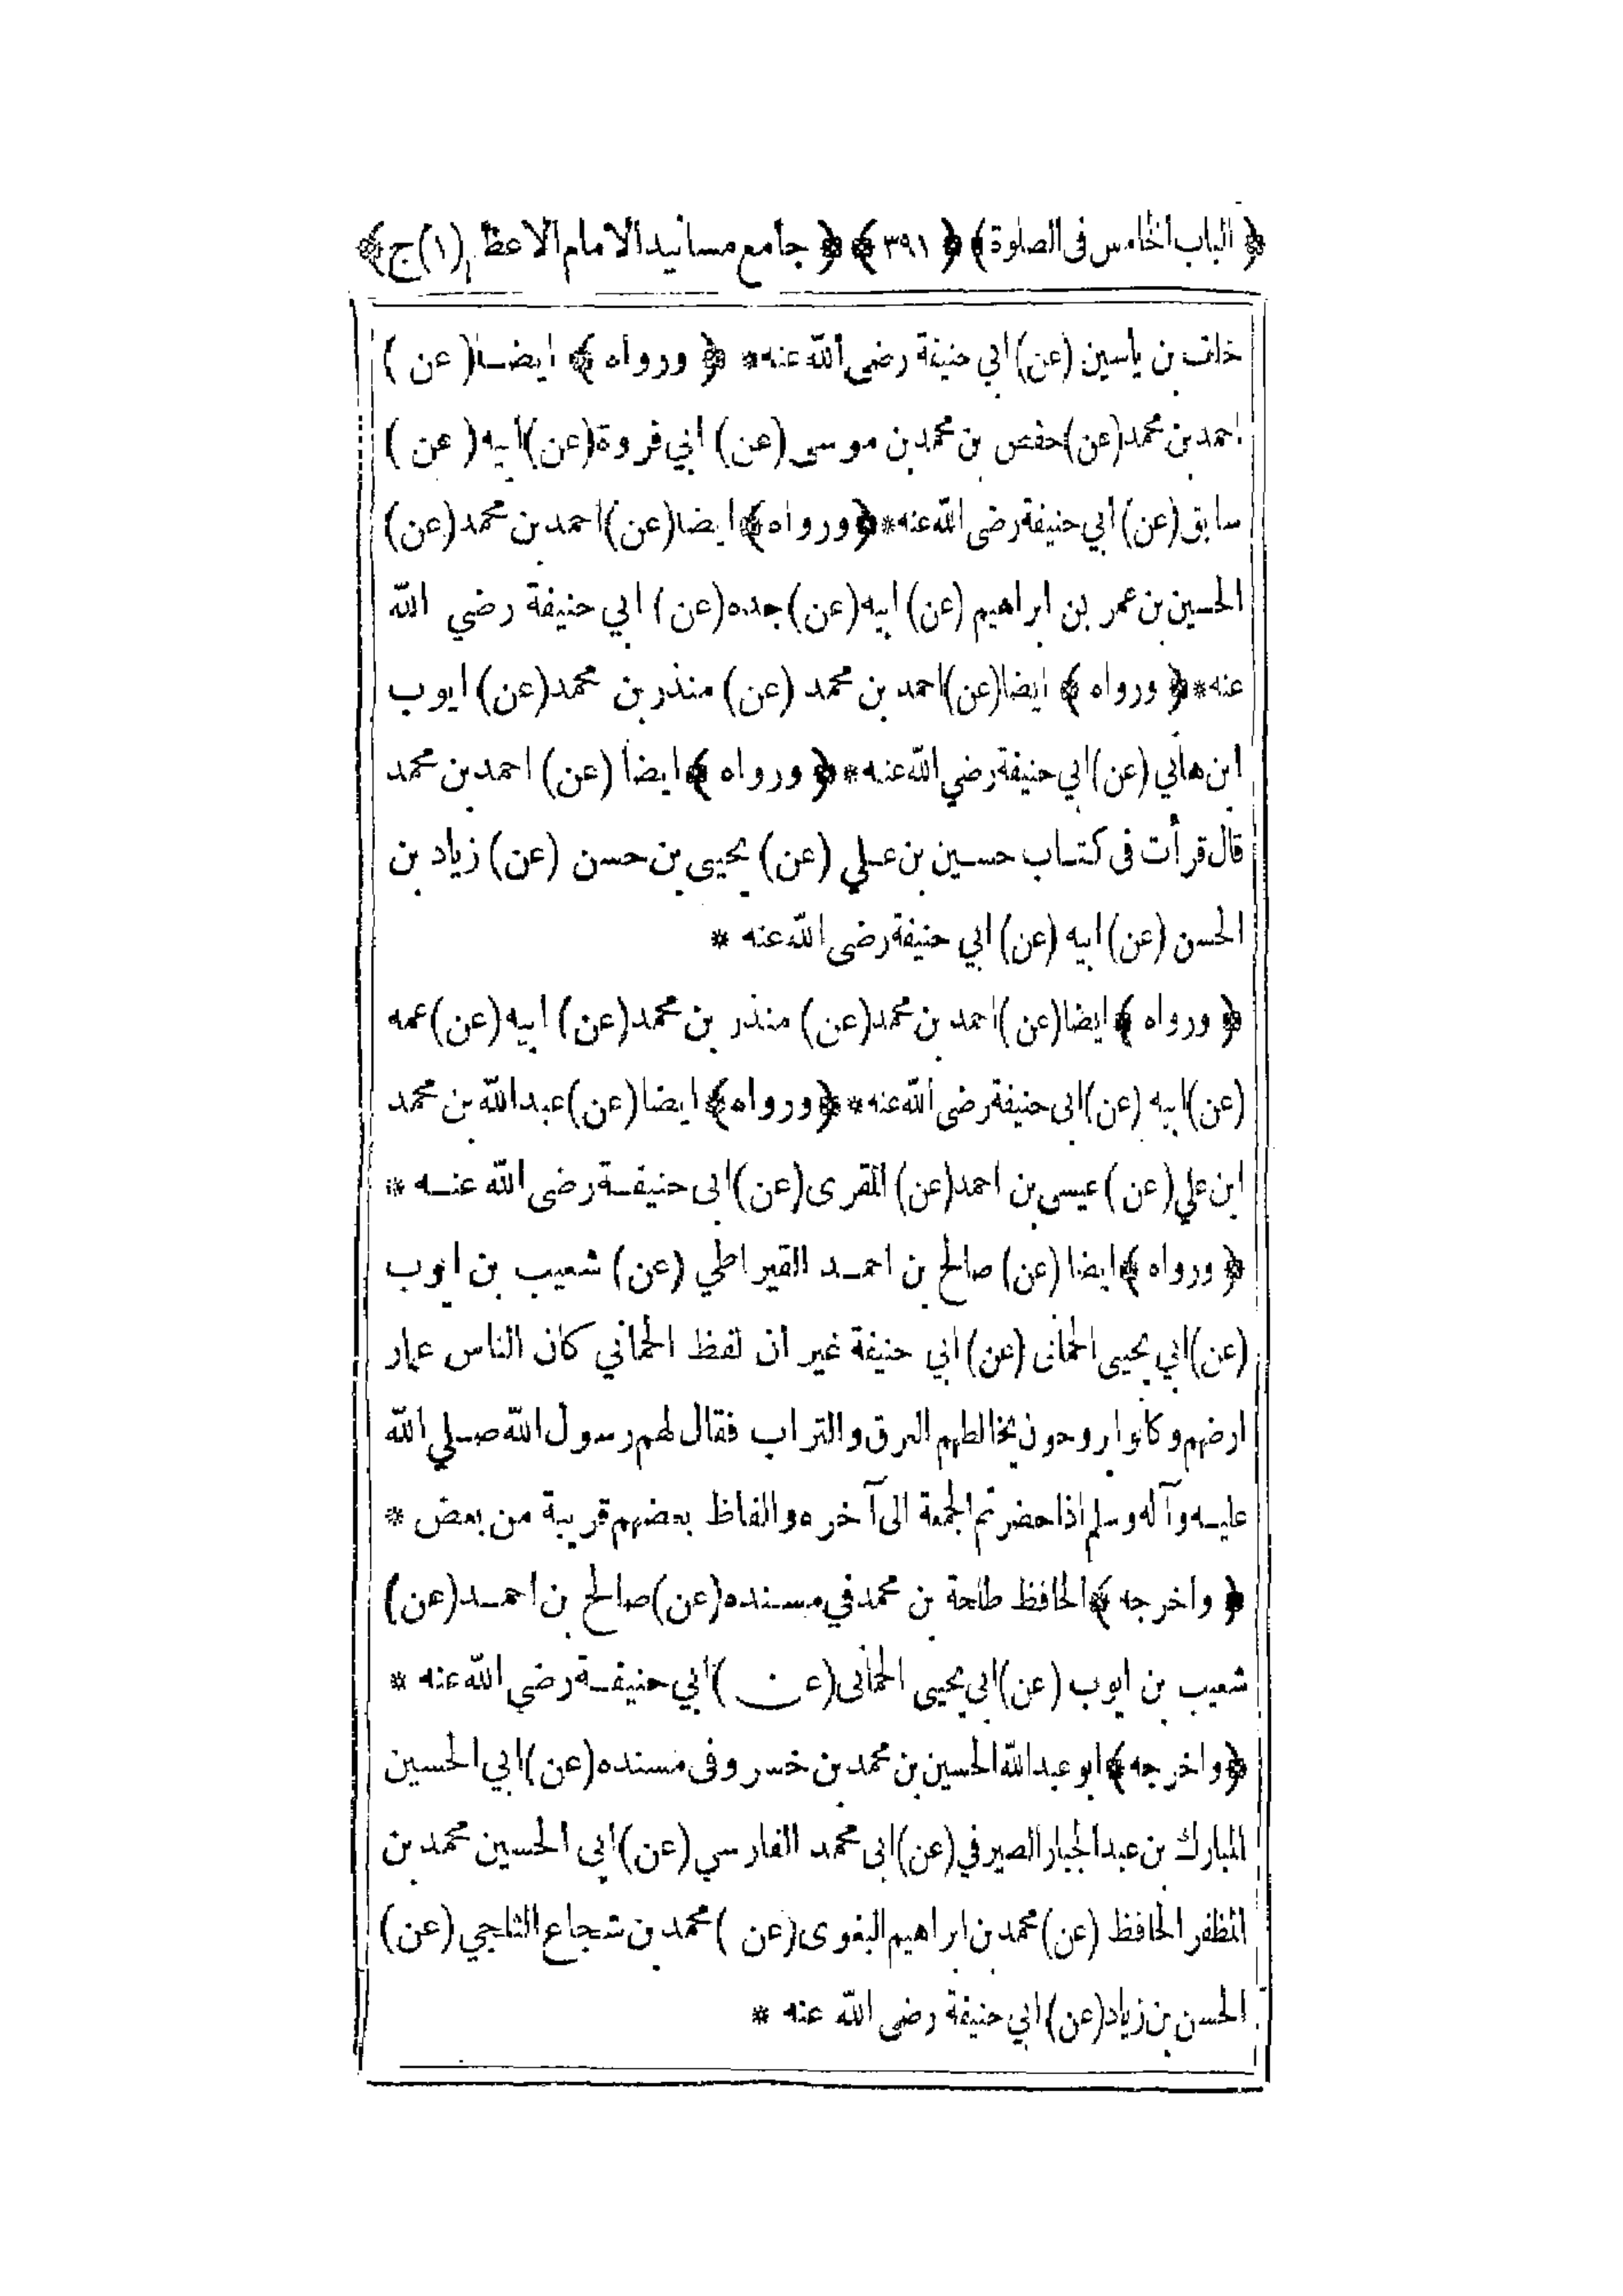 ﴿ الباب الخامس فى الصلوة ﴾ ﴿ ٣٩١ ﴾ ﴿ جامع مسانيد الامام الاعظم (١) ج ﴾
خلف بن ياسين (عن) ابي حنيفة رضى الله عنه * ﴿ ورواه ﴾ ايضا (عن)
احمد بن محمد (عن) حفص بن محمد بن موسى (عن) ابي فروة (عن) ابيه (عن)
سابق (عن) ابي حنيفة رضى الله عنه * ﴿ ورواه ﴾ ايضا (عن) احمد بن محمد (عن)
الحسين بن عمر بن ابراهيم (عن) ابيه (عن) جده (عن) ابي حنيفة رضي الله
عنه * ﴿ ورواه ﴾ ايضا (عن) احمد بن محمد (عن) منذر بن محمد (عن) ايوب
ابن هاني (عن) ابي حنيفة رضي الله عنه * ﴿ ورواه ﴾ ايضا (عن) احمد بن محمد
قال قرأت فى كتاب حسين بن علي (عن) يحيى بن حسن (عن) زياد بن
الحسن (عن) ابيه (عن) ابي حنيفة رضى الله عنه *
﴿ ورواه ﴾ ايضا (عن) احمد بن محمد (عن) منذر بن محمد (عن) ابيه (عن) عمه
(عن) ابيه (عن) ابى حنيفة رضى الله عنه * ﴿ ورواه ﴾ ايضا (عن) عبد الله بن محمد
ابن علي (عن) عيسى بن احمد (عن) المقرى (عن) ابى حنيفة رضى الله عنه *
﴿ ورواه ﴾ ايضا (عن) صالح بن احمد القيراطي (عن) شعيب بن ايوب
(عن) ابي يحيى الحمانى (عن) ابي حنيفة غير ان لفظ الحماني كان الناس عمار
ارضهم وكانوا يروحون يخالطهم العرق والتراب فقال لهم رسول الله صلي الله
عليه وآله وسلم اذا حضرتم الجمعة الى آخره والفاظ بعضهم قريبة من بعض *
﴿ واخرجه ﴾ الحافظ طلحة بن محمد في مسنده (عن) صالح بن احمد (عن)
شعيب بن ايوب (عن) ابى يحيى الحمانى (عن) ابي حنيفة رضى الله عنه *
﴿ واخرجه ﴾ ابو عبد الله الحسين بن محمد بن خسرو فى مسنده (عن) ابي الحسين
المبارك بن عبد الجبار الصيرفي (عن) ابى محمد الفارسي (عن) ابى الحسين محمد بن
المظفر الحافظ (عن) محمد بن ابراهيم البغوى (عن) محمد بن شجاع الثلجي (عن)
الحسن بن زياد (عن) ابي حنيفة رضى الله عنه *